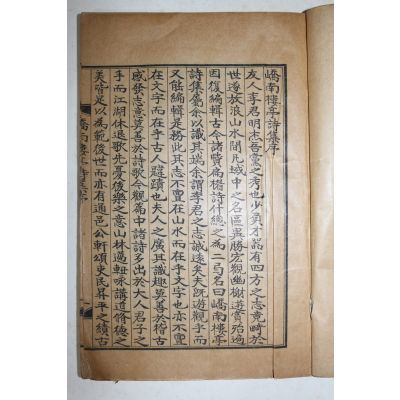 嶠南樓亭詩集序
友人李君明杰吾黨之秀也少負才器有四方之志竟畸於
世遂放浪山水間凡域中之名區與勝宏觀幽榭遊賞殆遍
因復編輯古今諸賢爲樓詩什總之爲二局名曰嶠南樓亭
詩集屬余以識其端余謂李君之志誠遠矣夫旣遊觀乎而
又能編輯是務此其志不亶在山水而在乎文字也亦不亶
在文字而在乎古人蹤蹟也夫人之廣其識趣莫善於稽古
感發志意莫善於詩歌今觀篇中諸詩多出於大人君子之
手而江湖休退歌先憂後樂之意山林邁軸咏講道脩德之
美皆足以爲範後世而亦有通邑公軒頌吏民昇平之績古
嶠南樓亭詩集序